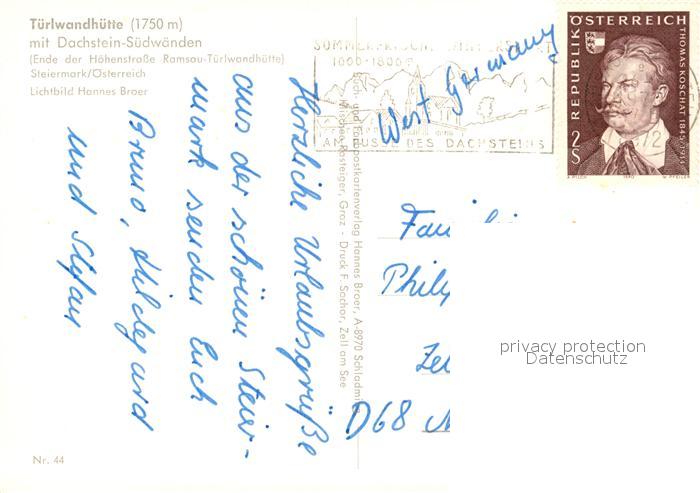 Türlwandhütte (1750 m)
mit Dachstein-Südwänden
(Ende der Höhenstraße Ramsau-Türlwandhütte)
Steiermark/Österreich
Lichtbild Hannes Broer
Herzliche Urlaubsgrüße
aus der schönen Steier-
mark senden Euch
Bruno, Hildegard
und Stefan
Nr. 44
Buch- und Kunstpostkartenverlag Hannes Broer, A-8970 Schladming
Graz - Druck F. Sochor, Zell am See
SOMMERFRISCHE
1000-1800
AM FUSSE DES DACHSTEINS
West Germany
REPUBLIK ÖSTERREICH
THOMAS KOSCHAT 1845-1914
2 S
A. PILCH 1970 W. PFEILER
72
Fam
Phil
D68
privacy protection
Datenschutz